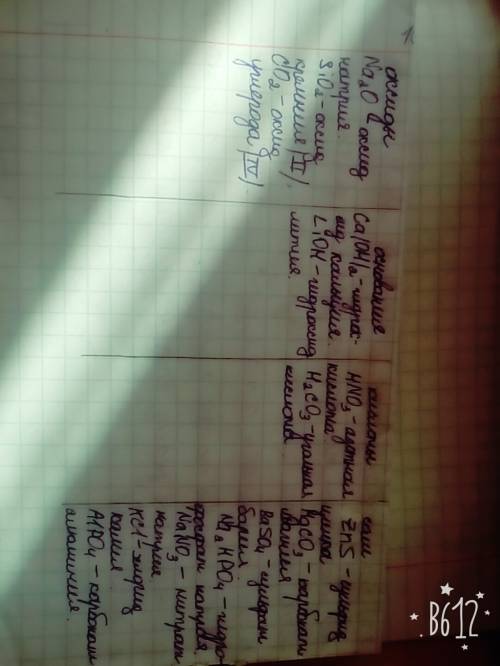 1.
оксиды
Na2O оксид
натрия.
SiO2 - оксид
кремния (II).
CO2 - оксид
углерода (IV)
основания
Ca(OH)2 - гидрок-
ид кальция.
LiOH - гидроксид
лития.
кислоты
HNO3 - азотная
кислота.
H2CO3 - угольная
кислота
соли
ZnS - сульфид
цинка
карбонат
BaSO4 - сульфат
бария
Na2HPO4 - гидро-
фосфат натрия.
NaNO3 - нитрат
натрия
KCl - хлорид
калия
AlPO4 - карбонат
алюминия.
B612